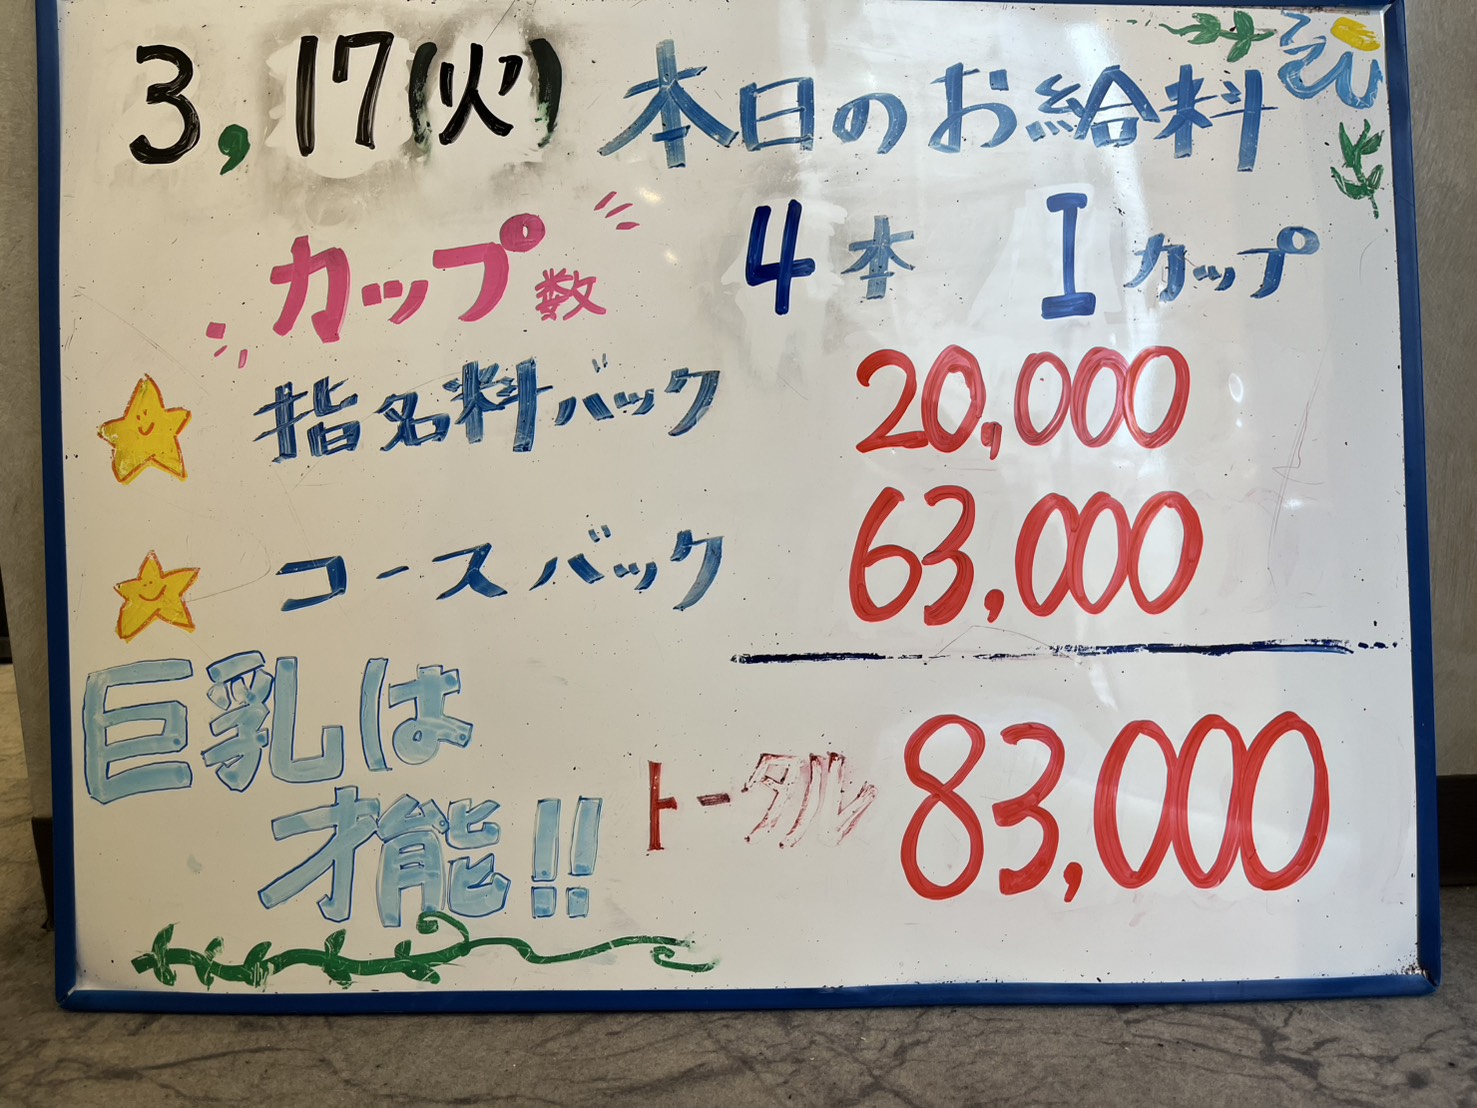 3,17(火) 本日のお給料
カップ数 4本 Iカップ
指名料バック 20,000
コースバック 63,000
巨乳は
才能!!
トータル 83,000